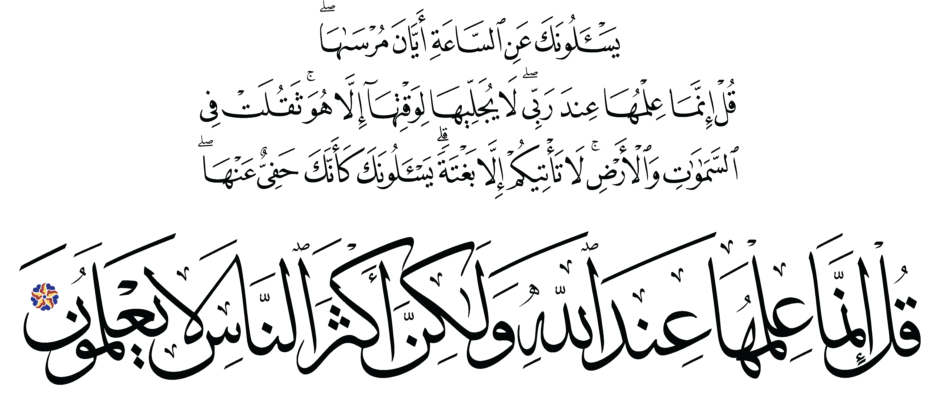 يَسْـَٔلُونَكَ عَنِ ٱلسَّاعَةِ أَيَّانَ مُرْسَىٰهَا ۖ
قُلْ إِنَّمَا عِلْمُهَا عِندَ رَبِّى ۖ لَا يُجَلِّيهَا لِوَقْتِهَآ إِلَّا هُوَ ۚ ثَقُلَتْ فِى
ٱلسَّمَٰوَٰتِ وَٱلْأَرْضِ ۚ لَا تَأْتِيكُمْ إِلَّا بَغْتَةً ۗ يَسْـَٔلُونَكَ كَأَنَّكَ حَفِىٌّ عَنْهَا ۖ
قُلْ إِنَّمَا عِلْمُهَا عِندَ ٱللَّهِ وَلَٰكِنَّ أَكْثَرَ ٱلنَّاسِ لَا يَعْلَمُونَ